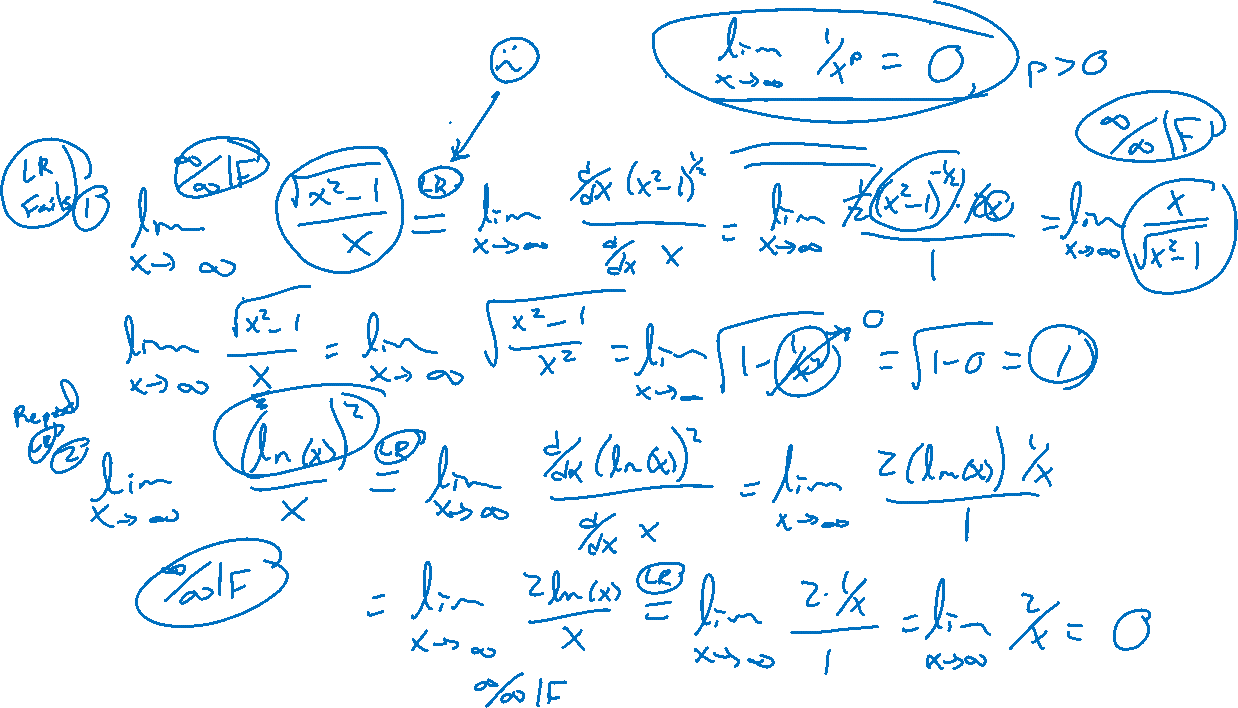 lim x→∞ 1/x^p = 0, p > 0
LR Fails ① lim x→∞ √(x²-1)/x ∞/∞ IF =(LR) lim x→∞ d/dx (x²-1)^½ / d/dx x = lim x→∞ ½(x²-1)^-½ · 2x / 1 = lim x→∞ x/√(x²-1) ∞/∞ IF
lim x→∞ √(x²-1)/x = lim x→∞ √((x²-1)/x²) = lim x→∞ √(1 - 1/x²) → 0 = √(1-0) = 1
Repeat LR ② lim x→∞ (ln(x))²/x =(LR) lim x→∞ d/dx (ln(x))² / d/dx x = lim x→∞ 2(ln(x)) 1/x / 1
∞/∞ IF = lim x→∞ 2 ln(x)/x =(LR) lim x→∞ 2·1/x / 1 = lim x→∞ 2/x = 0
∞/∞ IF